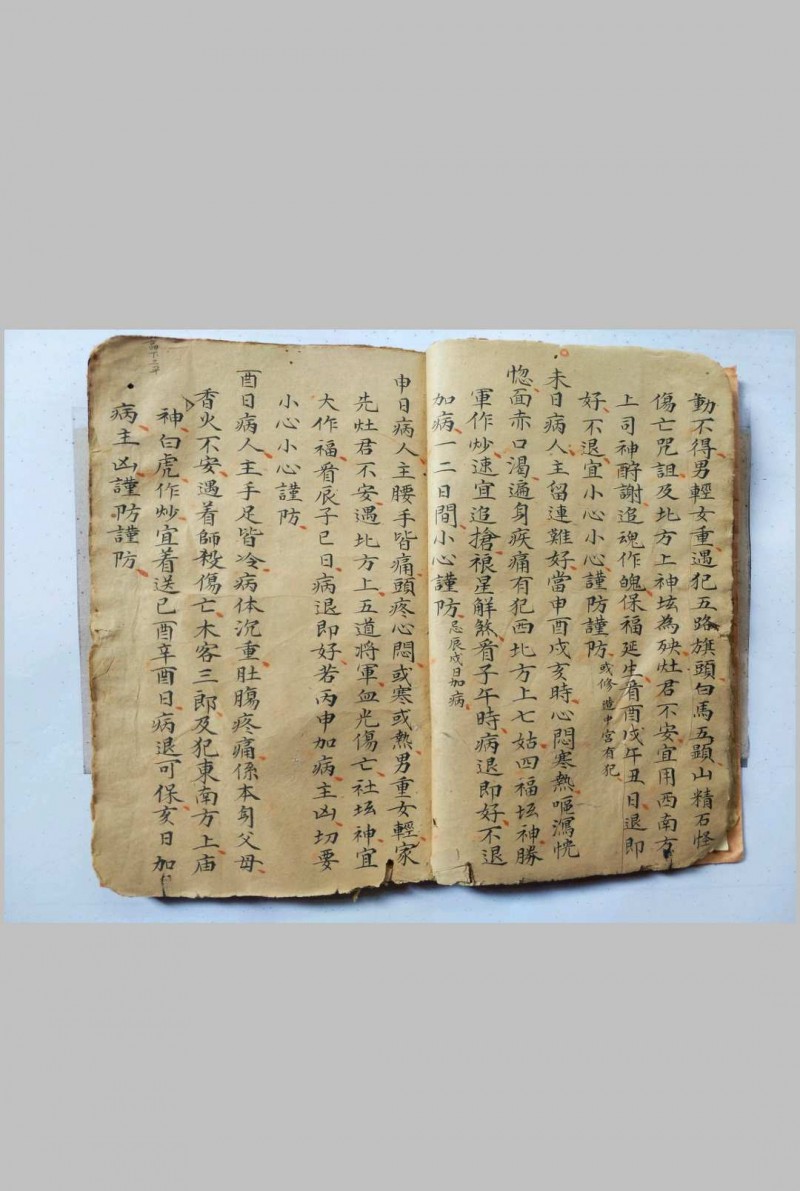 動不得男輕女重遇犯五路旗頭白馬五顯山精石怪
傷亡咒詛及北方上神坛為殃灶君不安宜用西南方
上司神酧謝追魂作魄保福延生看酉戌午丑日退即
好不退宜小心小心謹防謹防或修造中宮有犯
未日病人主留連難好當申酉戌亥時心悶寒熱嘔瀉恍
惚面赤口渴遍身疾痛有犯西北方上七姑四福坛神勝
軍作炒速宜追搶星解煞看子午時病退即好不退
加病一二日間小心謹防忌辰戌日加病
申日病人主腰手皆痛頭疼心悶或寒或熱男重女輕家
先灶君不安遇北方上五道將軍血光傷亡社坛神宜
大作福看辰子巳日病退即好若丙申加病主凶切要
小心小心謹防
酉日病人主手足皆冷病体沉重肚腸疼痛係本身父母
香火不安遇着師殺傷亡木客三郎及犯東南方上庙
神白虎作炒宜着送己酉辛酉日病退可保亥日加
病主凶謹防謹防